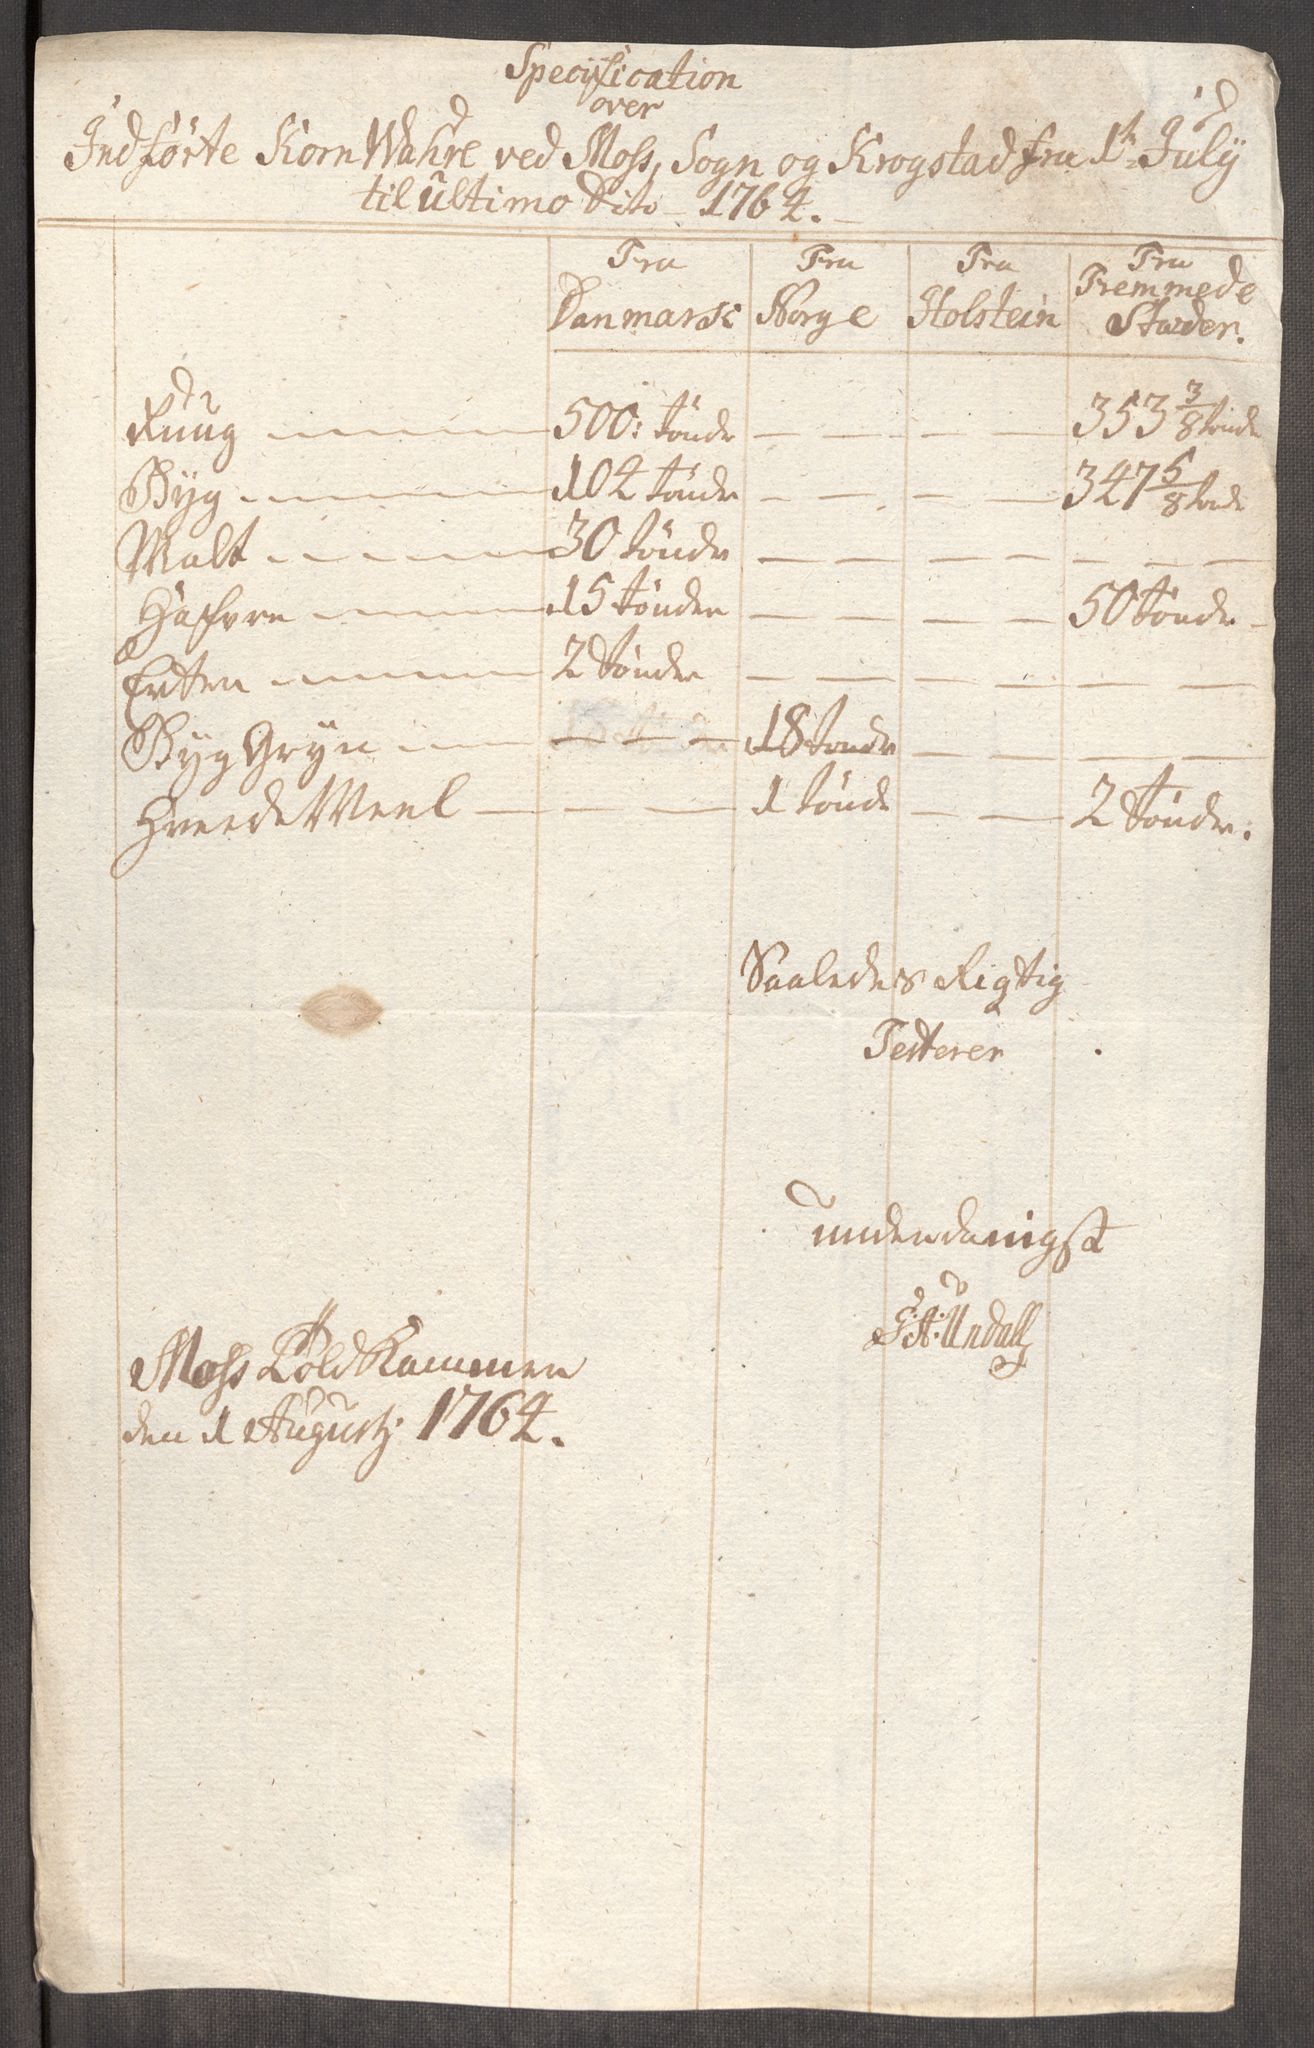 Specification
over
Indförte Korn Wahre ved Moss, Sogn og Krogstad fra 1t July
til ultimo Dito 1764.
Fra Danmark Fra Norge Fra Holstein Fra Fremmede Stæder.
Rüug 500: tönder 353 3/8 tönde
Byg 104 tönder 347 5/8 tönde
Malt 30 tönder
Hafvre 15 tönder 50 tönder
Erter 2 tönder
Byg Gryn 18 tönder
Hveede Meel 1 tönde 2 tönder.
Saaledes Rigtig
Testerer
underdanigst
Undall
Moss Told Kammer
den 1 Augustj. 1764.